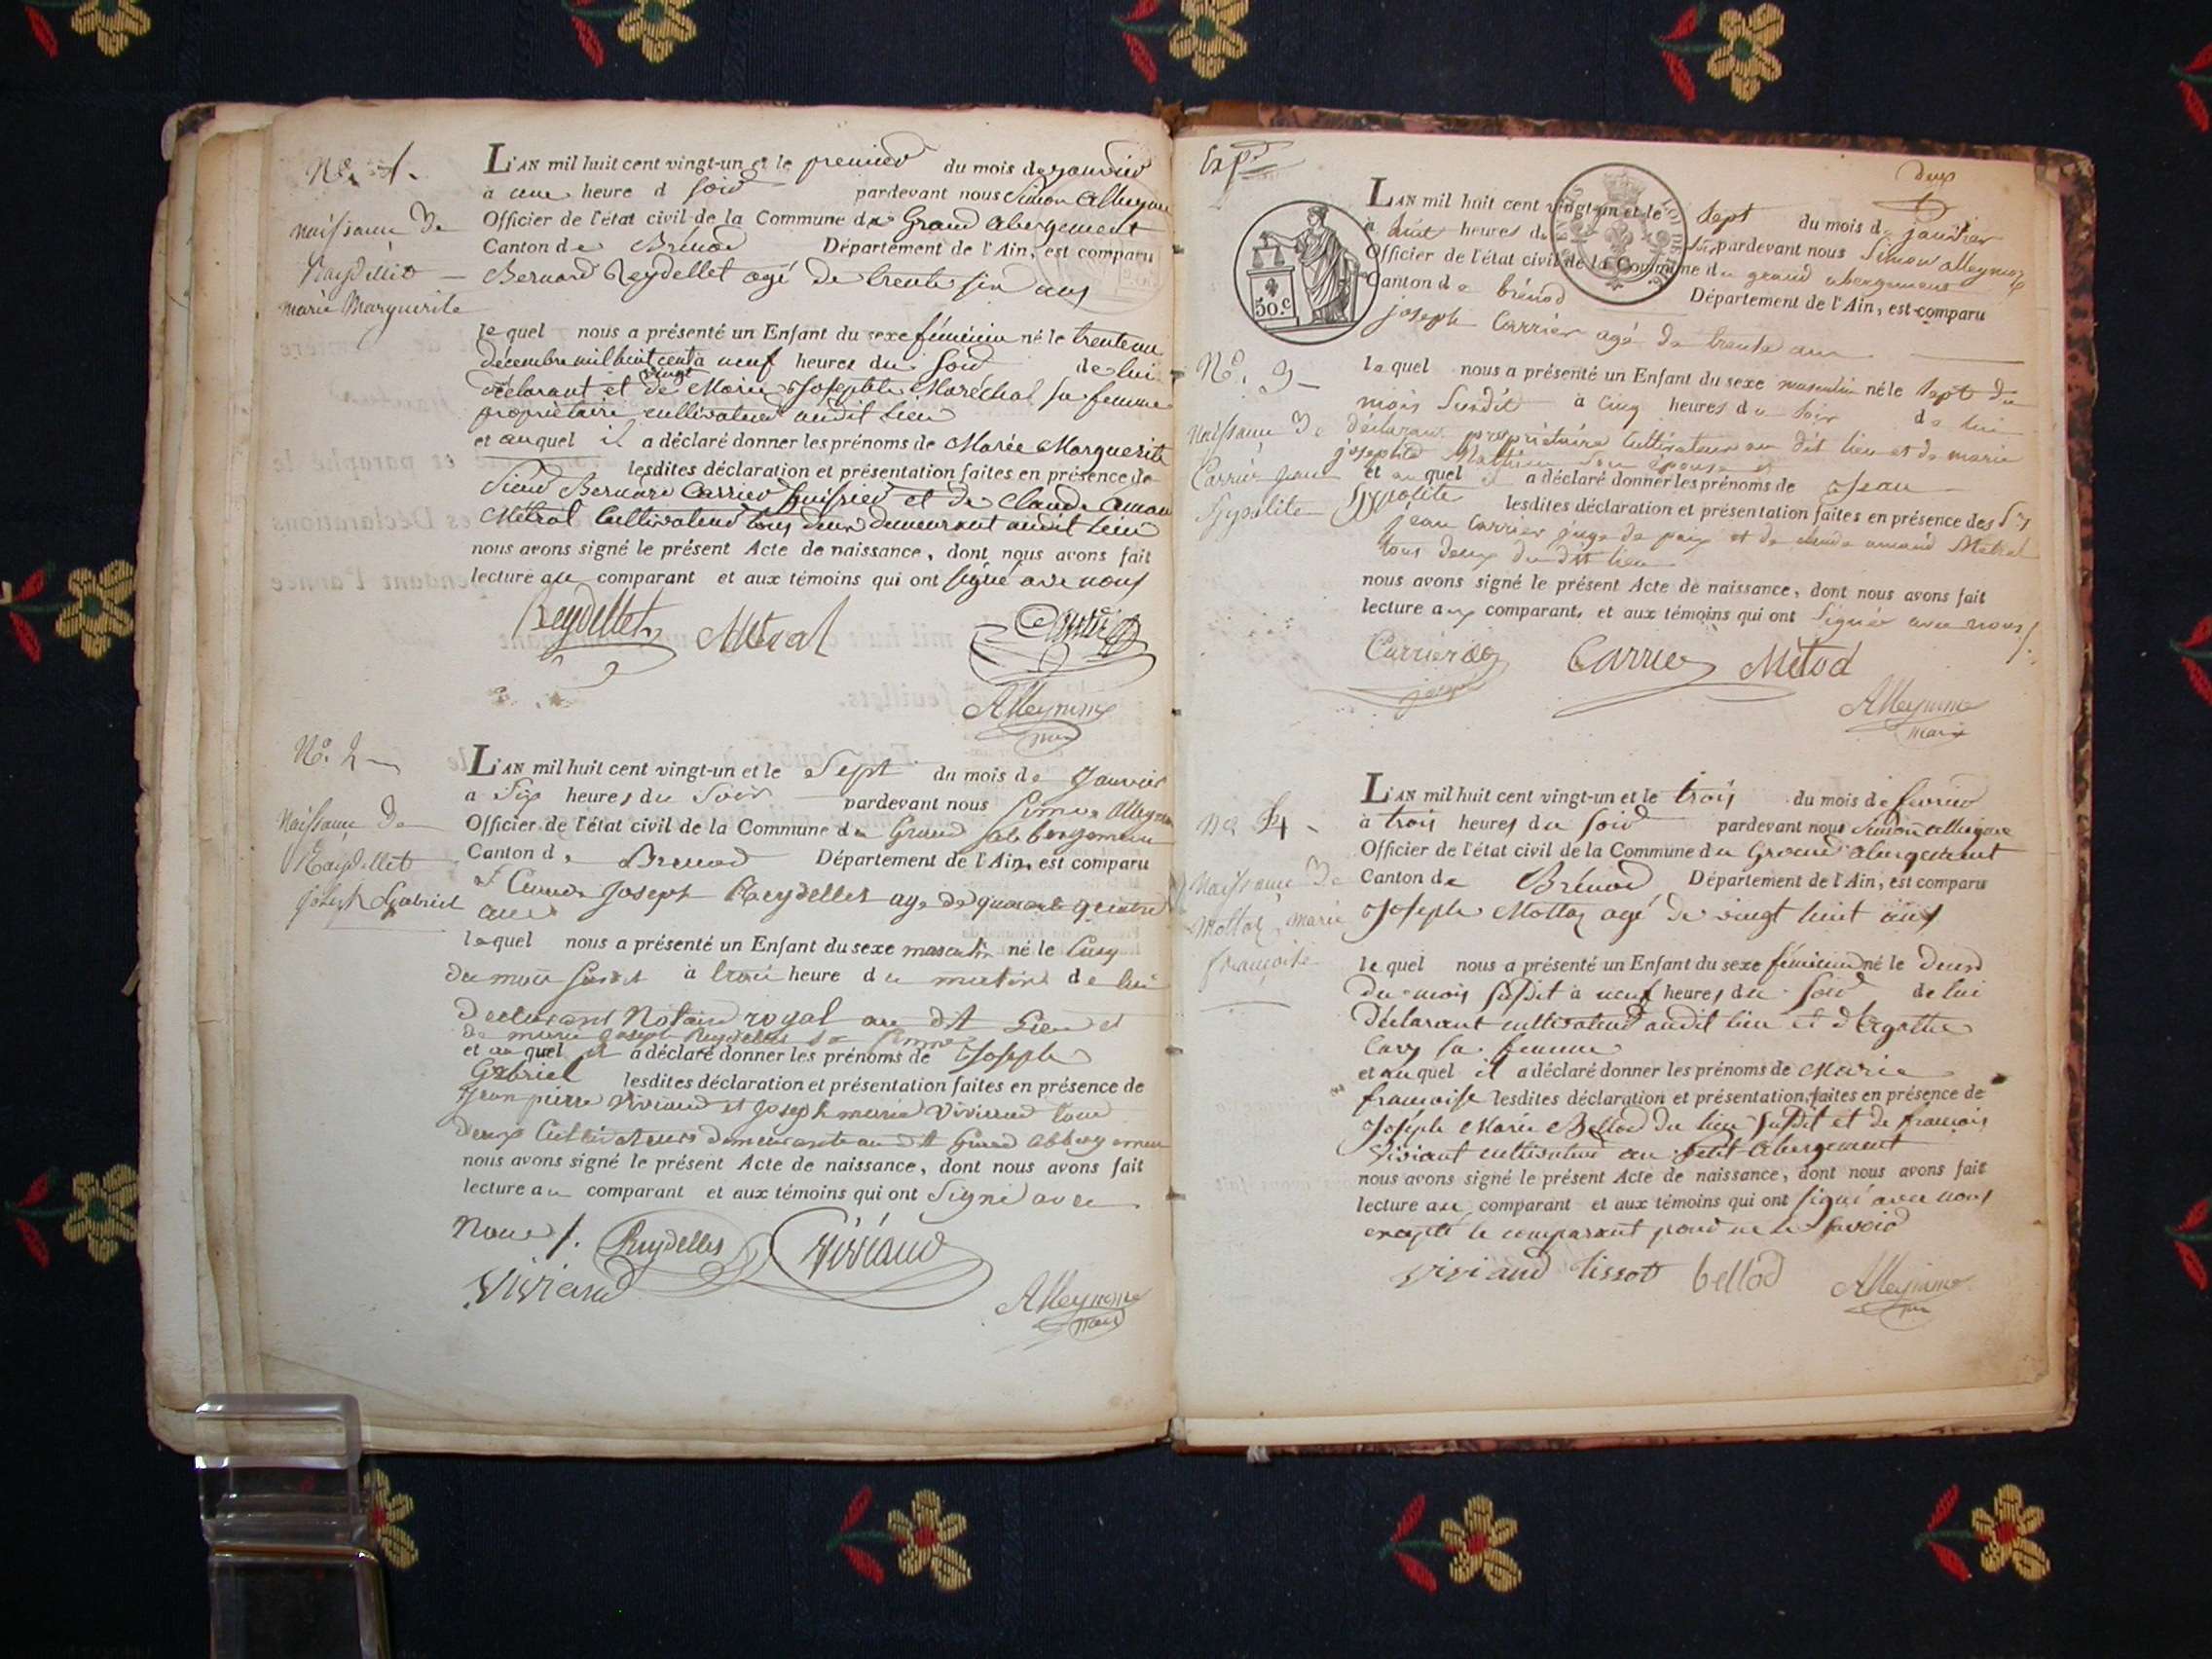 No. 1.
naissance de
Reydellet
marie Marguerite
L'AN mil huit cent vingt-un et le premier du mois de janvier
à une heure d soir pardevant nous Simon Alleyme
Officier de l'état civil de la Commune du Grand abergement
Canton de Brénod Département de l'Ain, est comparu
Bernard Reydellet agé de trente six ans
le quel nous a présenté un Enfant du sexe féminin né le trente un
décembre mil huit cent à neuf heures du soir de lui
vingt
déclarant et de Marie Josephte Maréchal sa femme
propriétaire cultivateur audit lieu
et auquel il a déclaré donner les prénoms de Marie Marguerite
lesdites déclaration et présentation faites en présence de
Sieur Bernard Carrier huissier et de Claude Aman
Métral Cultivateur tous deux demeurant audit lieu
nous avons signé le présent Acte de naissance, dont nous avons fait
lecture au comparant et aux témoins qui ont signé avec nous
Reydellet Métral Carrier
Alleymme
maire
No. 2
Naissance de
Reydellet
joseph Gabriel
L'AN mil huit cent vingt-un et le Sept du mois de Janvier
a Six heures du Soir pardevant nous Simon Alleyme
Officier de l'état civil de la Commune du Grand abbergement
Canton de Brenod Département de l'Ain, est comparu
Joseph Reydellet age de quarante quatre
ans
lequel nous a présenté un Enfant du sexe masculin né le Cinq
du mois susdit à trois heure du matin de lui
declarant Notaire royal au dit Lieu et
de marie joseph Reydellet sa femme
et au quel il a déclaré donner les prénoms de Joseph
Gabriel lesdites déclaration et présentation faites en présence de
Jean pierre Viviand et Joseph marie Viviand tous
deux Cultivateurs demeurant au dit Grand Abbergement
nous avons signé le présent Acte de naissance, dont nous avons fait
lecture au comparant et aux témoins qui ont Signé avec
nous /. Reydellet Viviand
Viviand
Alleymme
maire
deux
50.c
L'AN mil huit cent vingt-un et le Sept du mois de janvier
à huit heures du soir pardevant nous Simon alleymme
Officier de l'état civil de la Commune du grand abergement
Canton de brénod Département de l'Ain, est comparu
joseph Carrier agé de trente ans
No. 3
Naissance de
Carrier jean
Hypolite
le quel nous a présenté un Enfant du sexe masculin né le Sept du
mois Susdit à cinq heures du soir de lui
déclarant propriétaire Cultivateur au dit lieu et de marie
josephte Mathieu Son épouse
et au quel il a déclaré donner les prénoms de Jean
hypolite lesdites déclaration et présentation faites en présence des Srs
jean Carrier juge de paix et de claude amand Métral
tous deux du dit lieu
nous avons signé le présent Acte de naissance, dont nous avons fait
lecture aux comparants et aux témoins qui ont Signé avec nous /.
Carrier Carrier Métral
Alleymme
maire
No 4
Naissance de
Mottaz marie
françoise
L'AN mil huit cent vingt-un et le trois du mois de fevrier
à trois heures du soir pardevant nous Simon alleyme
Officier de l'état civil de la Commune du Grand abergement
Canton de Brénod Département de l'Ain, est comparu
Joseph Mottaz agé de vingt huit ans
le quel nous a présenté un Enfant du sexe féminin né le deux
du mois susdit à neuf heures du soir de lui
déclarant cultivateur audit lieu et d'Agathe
sa femme
et auquel il a déclaré donner les prénoms de Marie
françoise lesdites déclaration et présentation faites en présence de
Joséph Marie Bellod du lieu susdit et de françois
Viviant cultivateur au petit abergement
nous avons signé le présent Acte de naissance, dont nous avons fait
lecture au comparant et aux témoins qui ont signé avec nous
excepté le comparant pour ne le savoir
viviand tissot bellod Alleymme